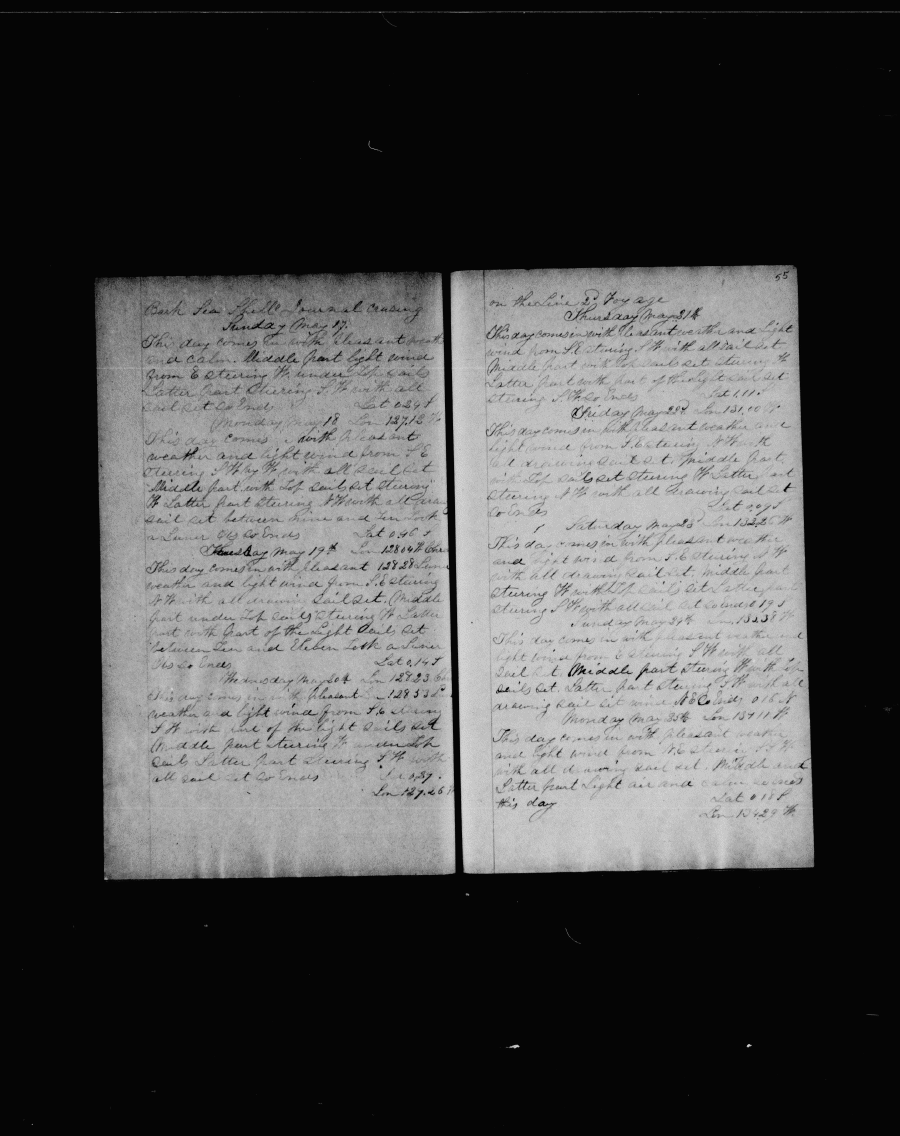 Bark Sea Shell Journal crusing
Sunday May 17.
This day comes in with pleasant weath
and calm. Middle part light wind
from E steering W. under Top sails
Latter part Steering S. W with all
sail set So Ends Lat 0.29 S
Monday May 18 Lon 127.12 W
This day comes with pleasant
weather and light wind from S. E
steering S W by W with all sail set
Middle part with Top sails set steering
W Latter part steering S W with all
sail set between Nine and Ten took
a Luner Obs So Ends Lat 0.06 S
Tuesday May 19th Lon 128.04 W
This day comes in with pleasant 128 28 Luner
weather and light wind from S. E steering
N W with all drawing Sail set. Middle
part under Top sails Steering W Latter
part with Part of the Light Sails set
between Ten and Eleben Took a Luner
Obs So Ends Lat 0,14 S
Wednesday May 20th Lon 128 23
This day comes in with pleasant 128 53
weather and light wind from S. E steering
S W with part of the light sails set
Middle part steering W under Top
sails Latter part steering S W with
all sail set So Ends Lat 0,37.
Lon 129.26 W
55
on the Line 2d Voyage
Thursday May 21th
This day comes in with pleasant weather and Light
wind from S. E steering S W with all sail set
Middle part with Top sails set steering W
Latter part with part of the light sail set
steering S W So Ends Lat 1,11 S
Friday May 22d Lon 131,00 W
This day comes in with pleasant weather and
light wind from S. E steering N W with
all drawing sail set. Middle part
with Top sails set steering W Latter part
steering N W with all drawing sail set
So Ends Lat 0,09 S
Saturday May 23d Lon 132,26 W
This day comes in with pleasant weather
and light wind from S. E steering S W
with all drawing sail set. Middle part
steering W with Top sails set Latter part
steering S W with all sail set So Ends 0 19 S
Sunday May 24th Lon, 133 38 W
This day comes in with pleasant weather and
light wind from E steering S W with all
sail set. Middle part steering W with Top
sails set. Latter part steering S W with all
drawing sail set wind N E So Ends 0 18 N
Monday May 25th Lon 134 11 W
This day comes in with pleasant weather
and light wind from N. E steering S W
with all drawing sail set. Middle and
Latter part Light air and calm So Ends
this day Lat 0 18 S
Lon 134 29 W.